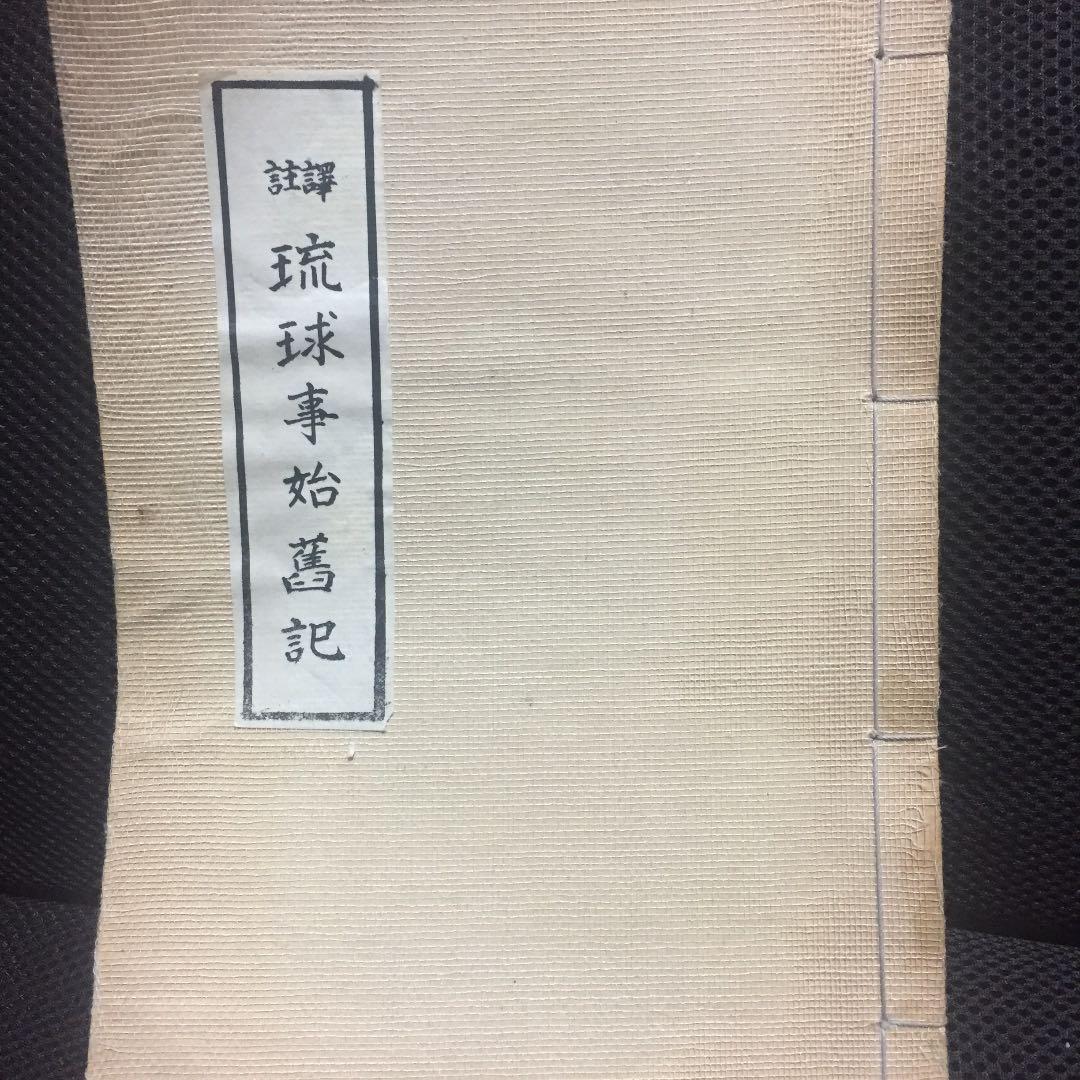 譯註
琉球事始舊記